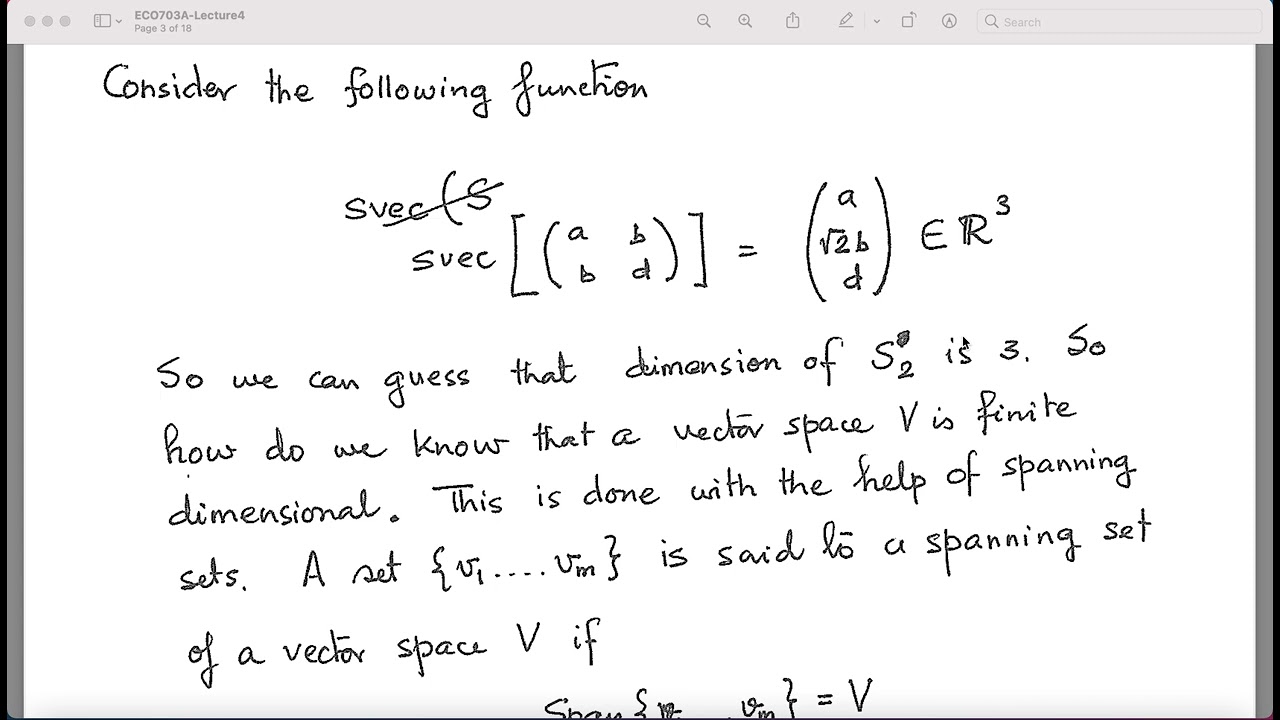 ECO703A-Lecture4
Page 3 of 18
Search
Consider the following function
svec (S
svec [ ( a b
b d ) ] = ( a
√2b
d ) ∈ ℝ³
So we can guess that dimension of S₂ is 3. So
how do we know that a vector space V is finite
dimensional. This is done with the help of spanning
sets. A set {v₁ .... vₘ} is said to a spanning set
of a vector space V if
Span { vₘ} = V